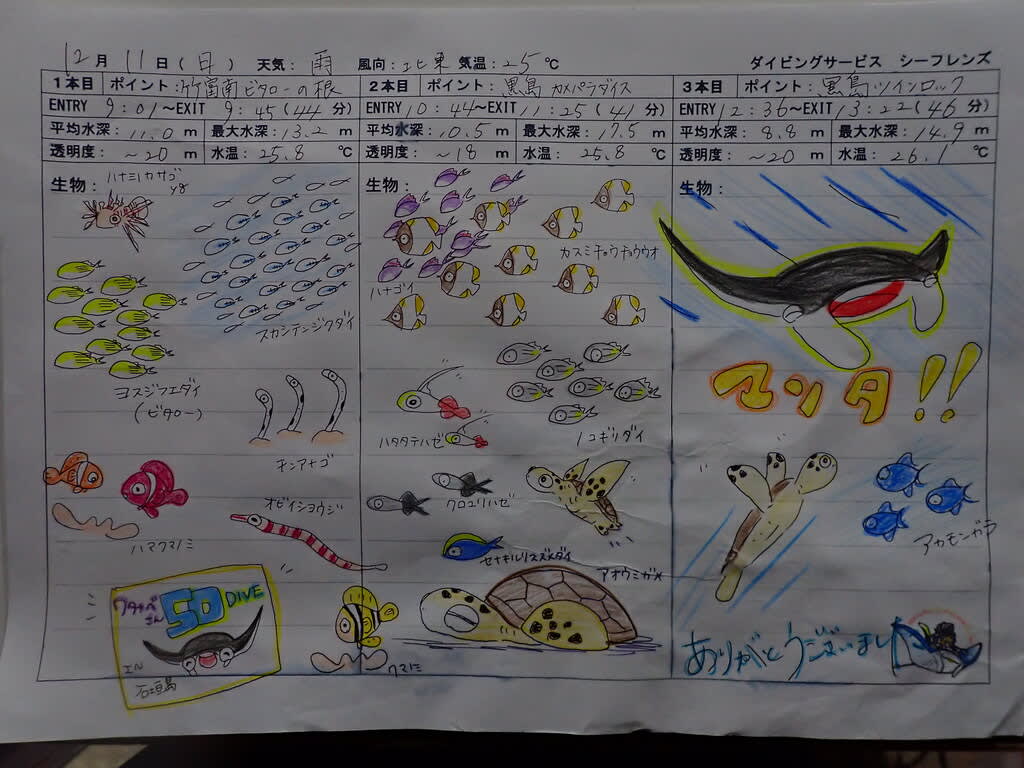 12月 11日(日) 天気: 雨 風向: 北東 気温: 25℃ ダイビングサービス シーフレンズ
1本目 ポイント: 竹富南ビタローの根
ENTRY 9:01~EXIT 9:45(44分)
平均水深: 11.0 m 最大水深: 13.2 m
透明度: ~20 m 水温: 25.8 ℃
生物:
ハナミノカサゴ
yg
スカシテンジクダイ
ヨスジフエダイ
(ビタロー)
チンアナゴ
オビイシヨウジ
ハマクマノミ
ワタナベさん
50 DIVE
IN
石垣島
2本目 ポイント: 黒島 カメパラダイス
ENTRY 10:44~EXIT 11:25(41分)
平均水深: 10.5 m 最大水深: 17.5 m
透明度: ~18 m 水温: 25.8 ℃
生物:
カスミチョウチョウウオ
ハナゴイ
ハタタテハゼ
ノコギリダイ
クロユリハゼ
セナキルリスズメダイ
アオウミガメ
クマノミ
3本目 ポイント: 黒島ツインロック
ENTRY 12:36~EXIT 13:22(46分)
平均水深: 8.8 m 最大水深: 14.9 m
透明度: ~20 m 水温: 26.1 ℃
生物:
マンタ!!
アカモンガラ
ありがとうございまし